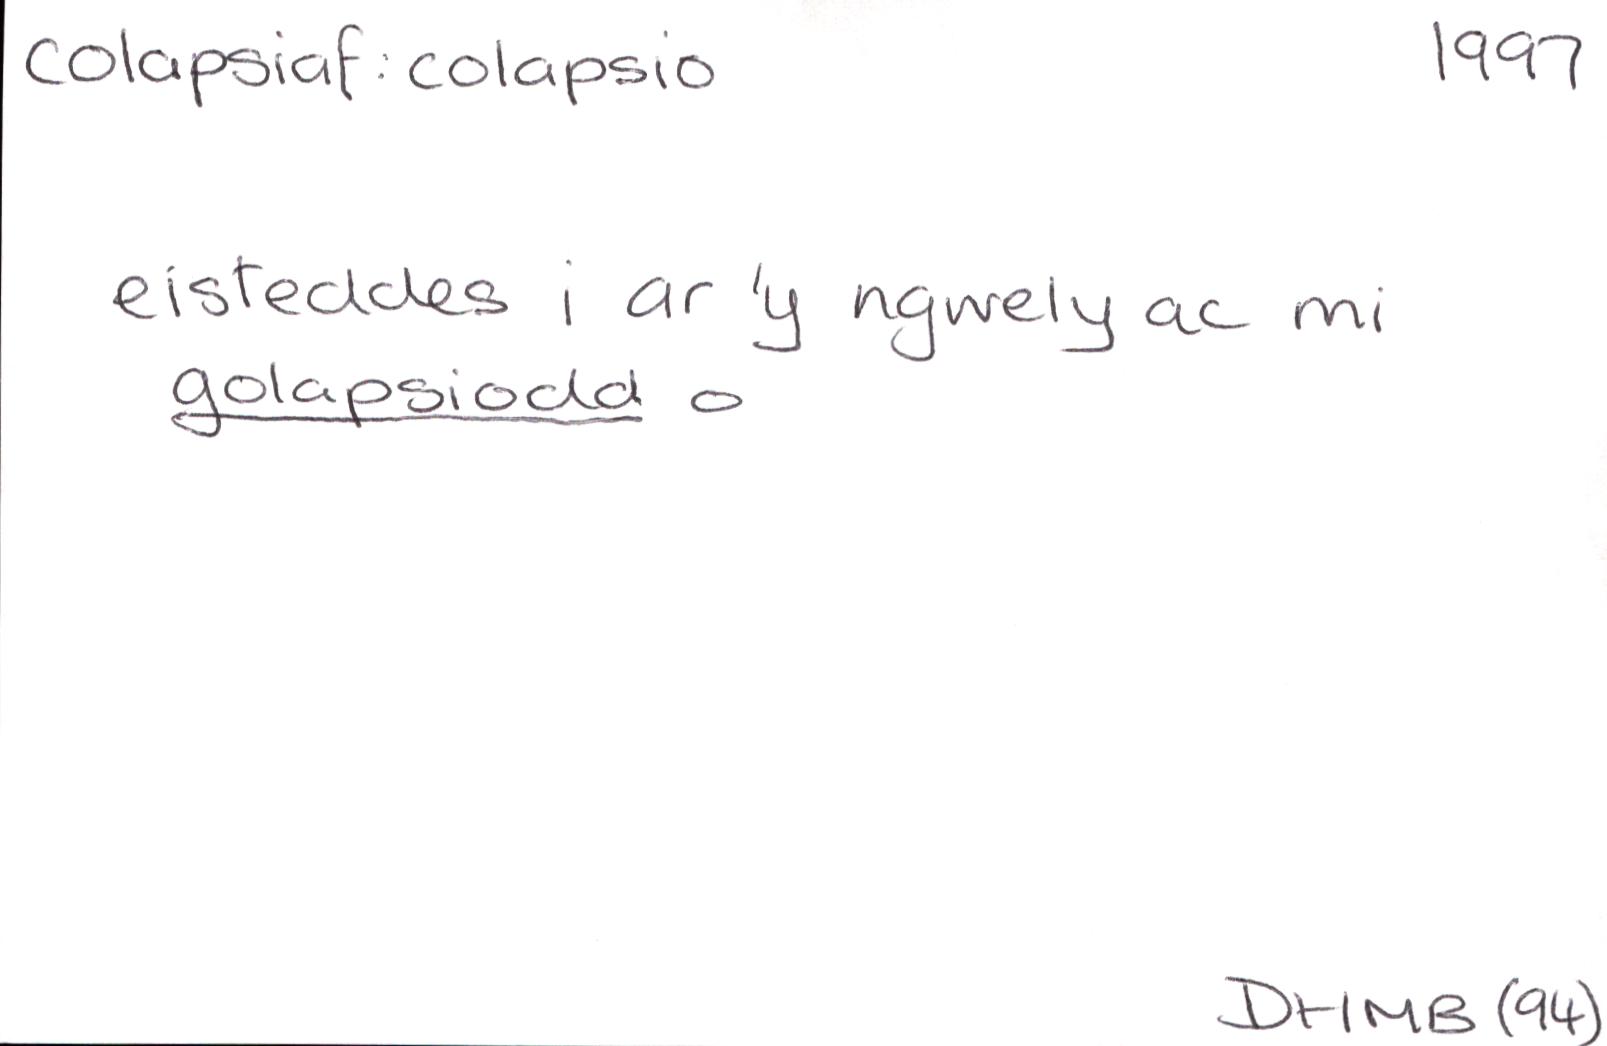 colapsiaf: colapsio 1997
eisteddes i ar 'y ngwely ac mi
golapsiodd o
DHMB (94)